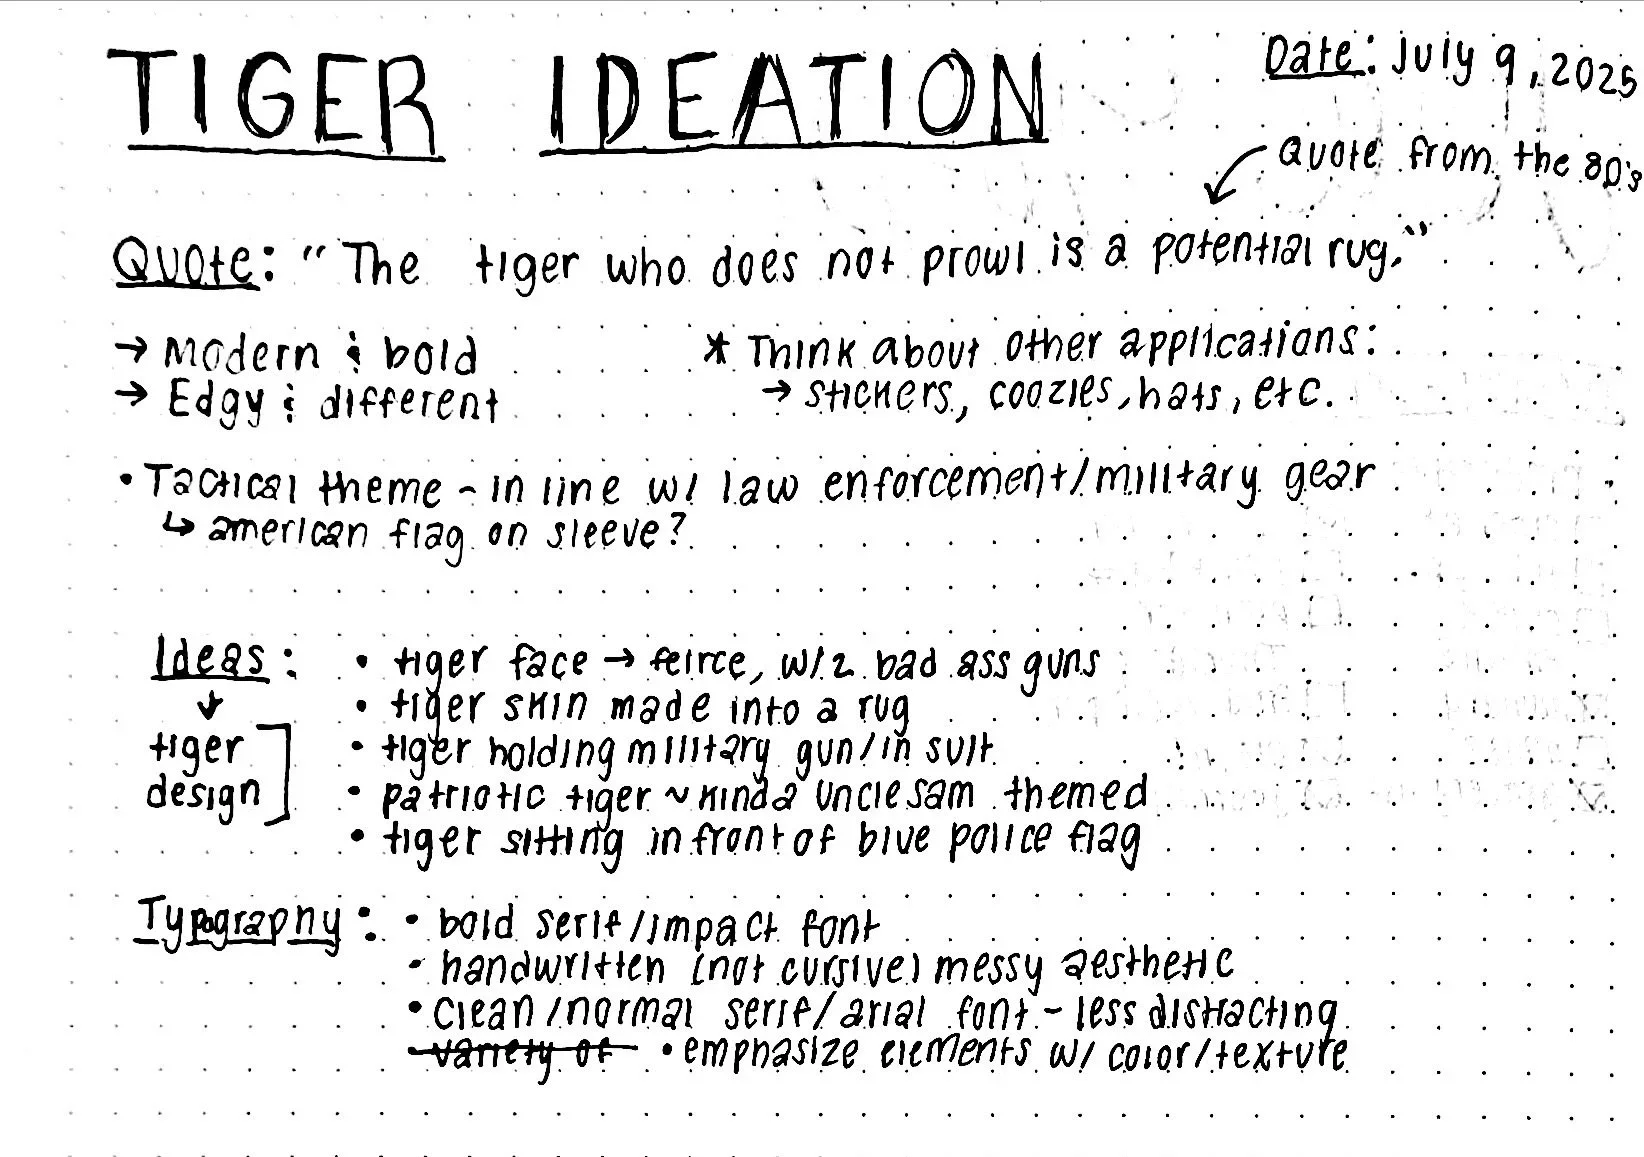 TIGER IDEATION
Date: July 9, 2025
Quote from the 80's
Quote: "The tiger who does not prowl is a potential rug."
→ Modern & bold
→ Edgy & different
* Think about other applications:
→ stickers, coozies, hats, etc.
• Tactical theme - in line w/ law enforcement/military gear
↳ american flag on sleeve?
Ideas:
↓
tiger
design
• tiger face → feirce, w/ 2 bad ass guns
• tiger skin made into a rug
• tiger holding military gun/in suit
• patriotic tiger ~ kinda uncle sam themed
• tiger sitting in front of blue police flag
Typography:
• bold serif/impact font
• handwritten (not cursive) messy aesthetic
• clean/normal serif/arial font - less distracting
variety of • emphasize elements w/ color/texture